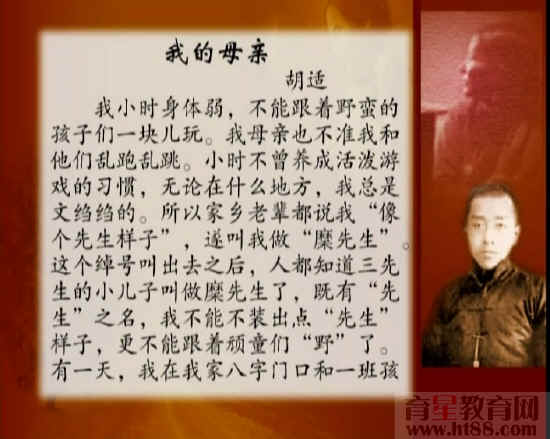 我的母亲
胡适
我小时身体弱，不能跟着野蛮的
孩子们一块儿玩。我母亲也不准我和
他们乱跑乱跳。小时不曾养成活泼游
戏的习惯，无论在什么地方，我总是
文绉绉的。所以家乡老辈都说我“像
个先生样子”，遂叫我做“糜先生”。
这个绰号叫出去之后，人都知道三先
生的小儿子叫做糜先生了，既有“先
生”之名，我不能不装出点“先生”
样子，更不能跟着顽童们“野”了。
有一天，我在我家八字门口和一班孩
育星教育网
www.ht88.com